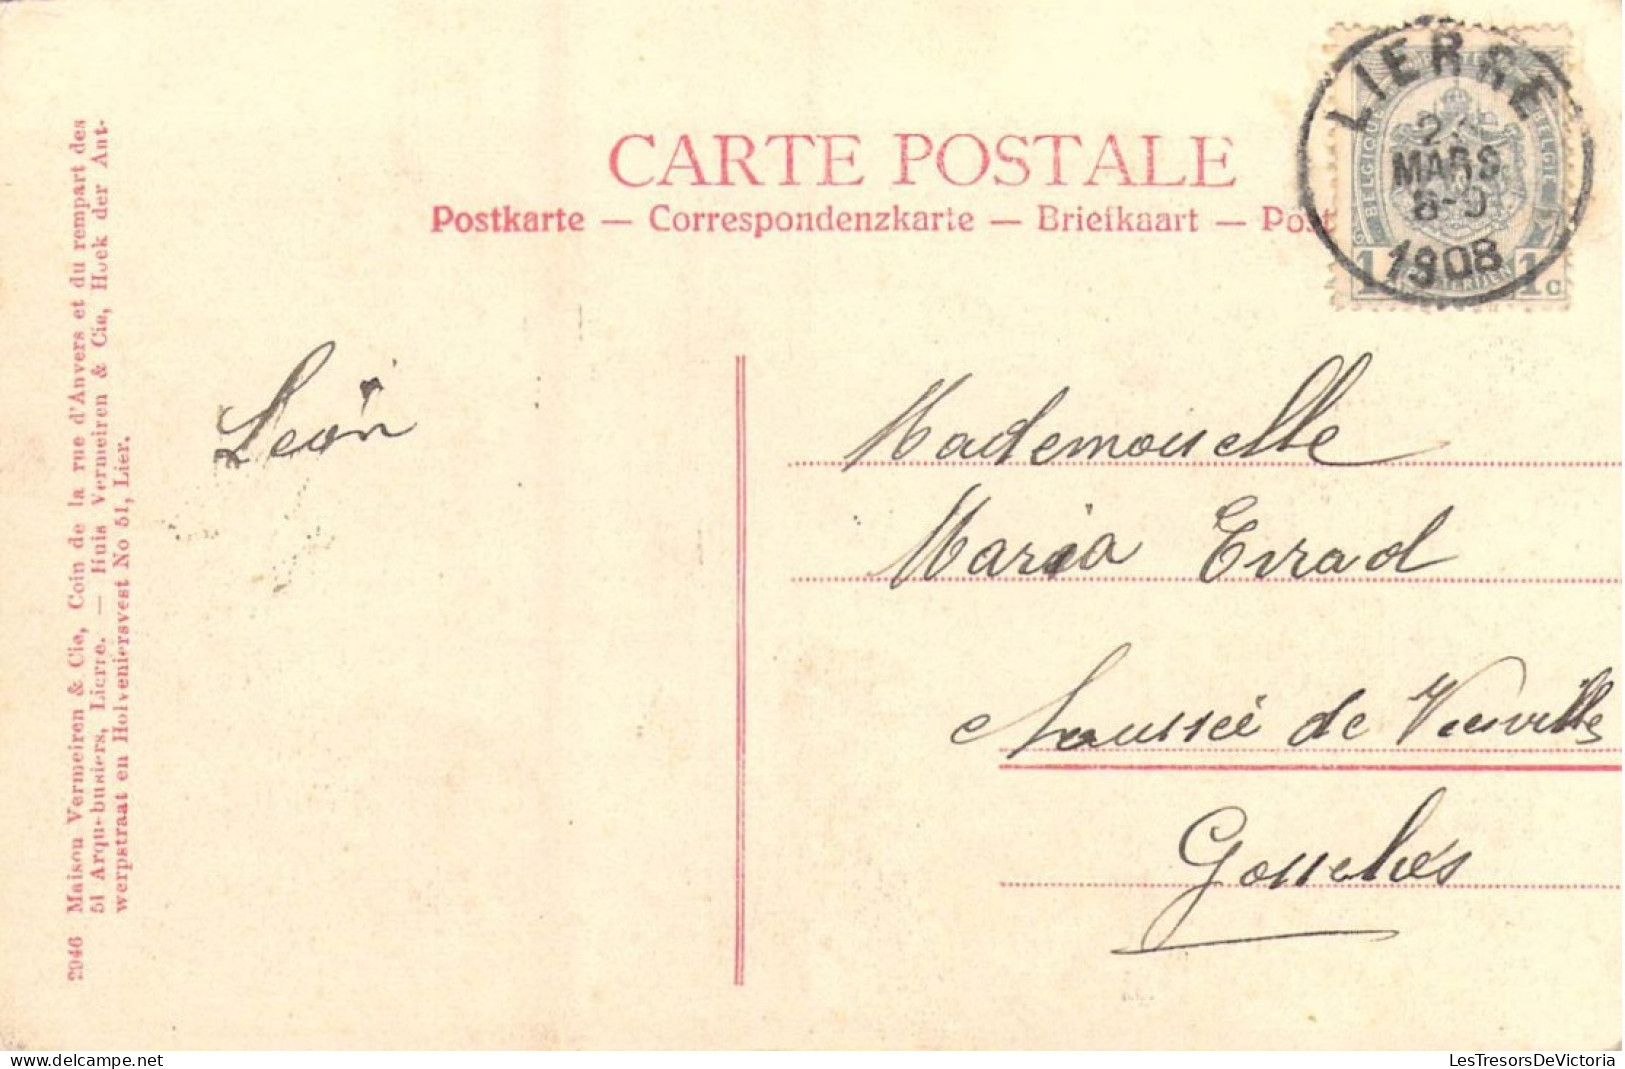 CARTE POSTALE
Postkarte — Correspondenzkarte — Briefkaart — Post
LIERRE
MARS
8-9
1908
BELGIQUE
BELGIE
1 1c
2946 Maison Vermeiren & Cie, Coin de la rue d'Anvers et du rempart des
51 Arquebusiers, Lierre. — Huis Vermeiren & Cie, Hoek der Ant-
werpstraat en Hoveniersvest No 51, Lier.
Léon
Mademoiselle
Maria Errad
Chaussée de Viesville
Gosselies
LesTresorsDeVictoria